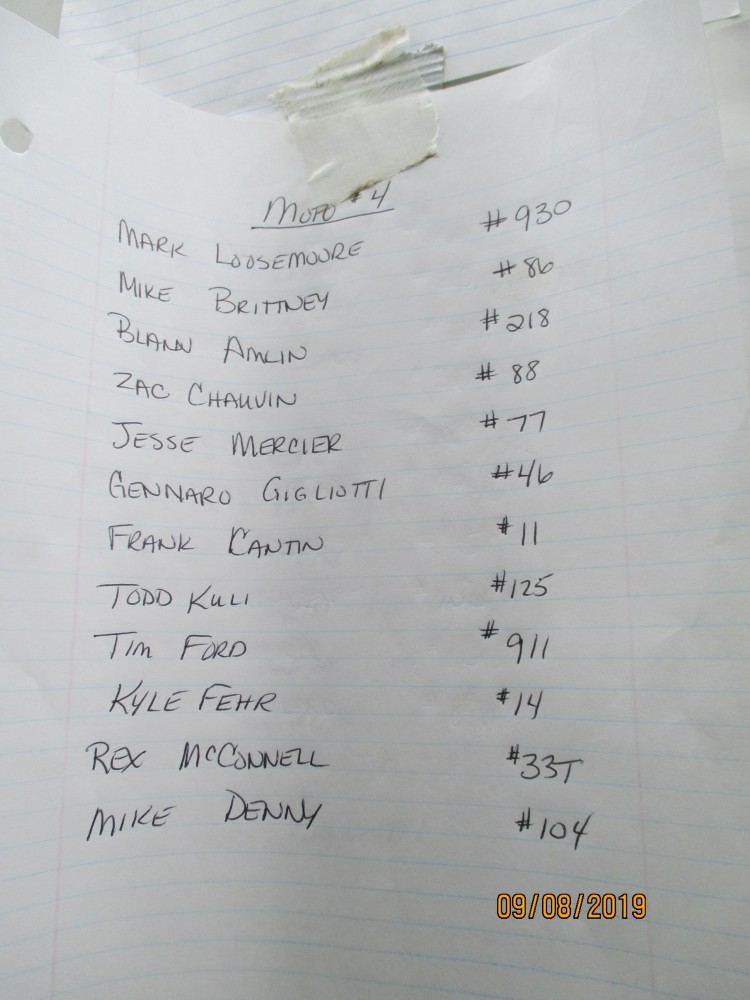 MOTO #4
MARK LOOSEMOORE #930
MIKE BRITTNEY #86
BLANN AMLIN #218
ZAC CHAUVIN #88
JESSE MERCIER #77
GENNARO GIGLIOTTI #46
FRANK CANTIN #11
TODD KULI #125
TIM FORD #911
KYLE FEHR #14
REX McCONNELL #33T
MIKE DENNY #104
09/08/2019